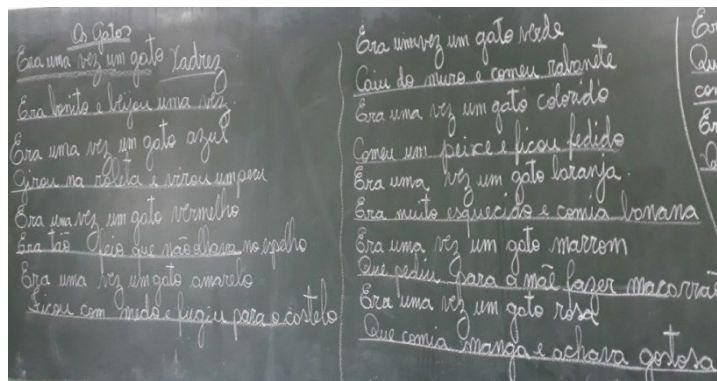 Os Gatos
Era uma vez um gato Xadrez
Era bonito e beijou uma vez.
Era uma vez um gato azul
Girou na roleta e virou um peru
Era uma vez um gato vermelho
Era tão feio que não olhava no espelho
Era uma vez um gato amarelo
Ficou com medo e fugiu para o castelo
Era uma vez um gato verde
Caiu do muro e comeu rabanete
Era uma vez um gato colorido
Comeu um peixe e ficou fedido
Era uma vez um gato laranja.
Era muito esquecido e comia banana
Era uma vez um gato marrom
Que pediu para a mãe fazer macarrão
Era uma vez um gato rosa
Que comia manga e achava gostosa